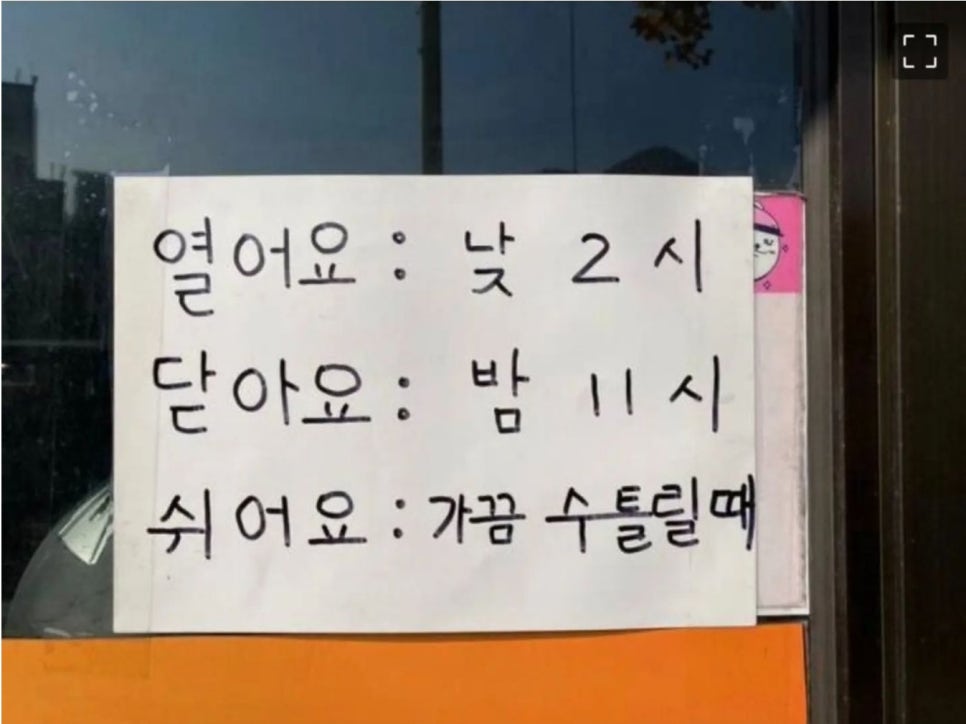 열어요 : 낮 2시
닫아요 : 밤 11시
쉬어요 : 가끔 수틀릴때